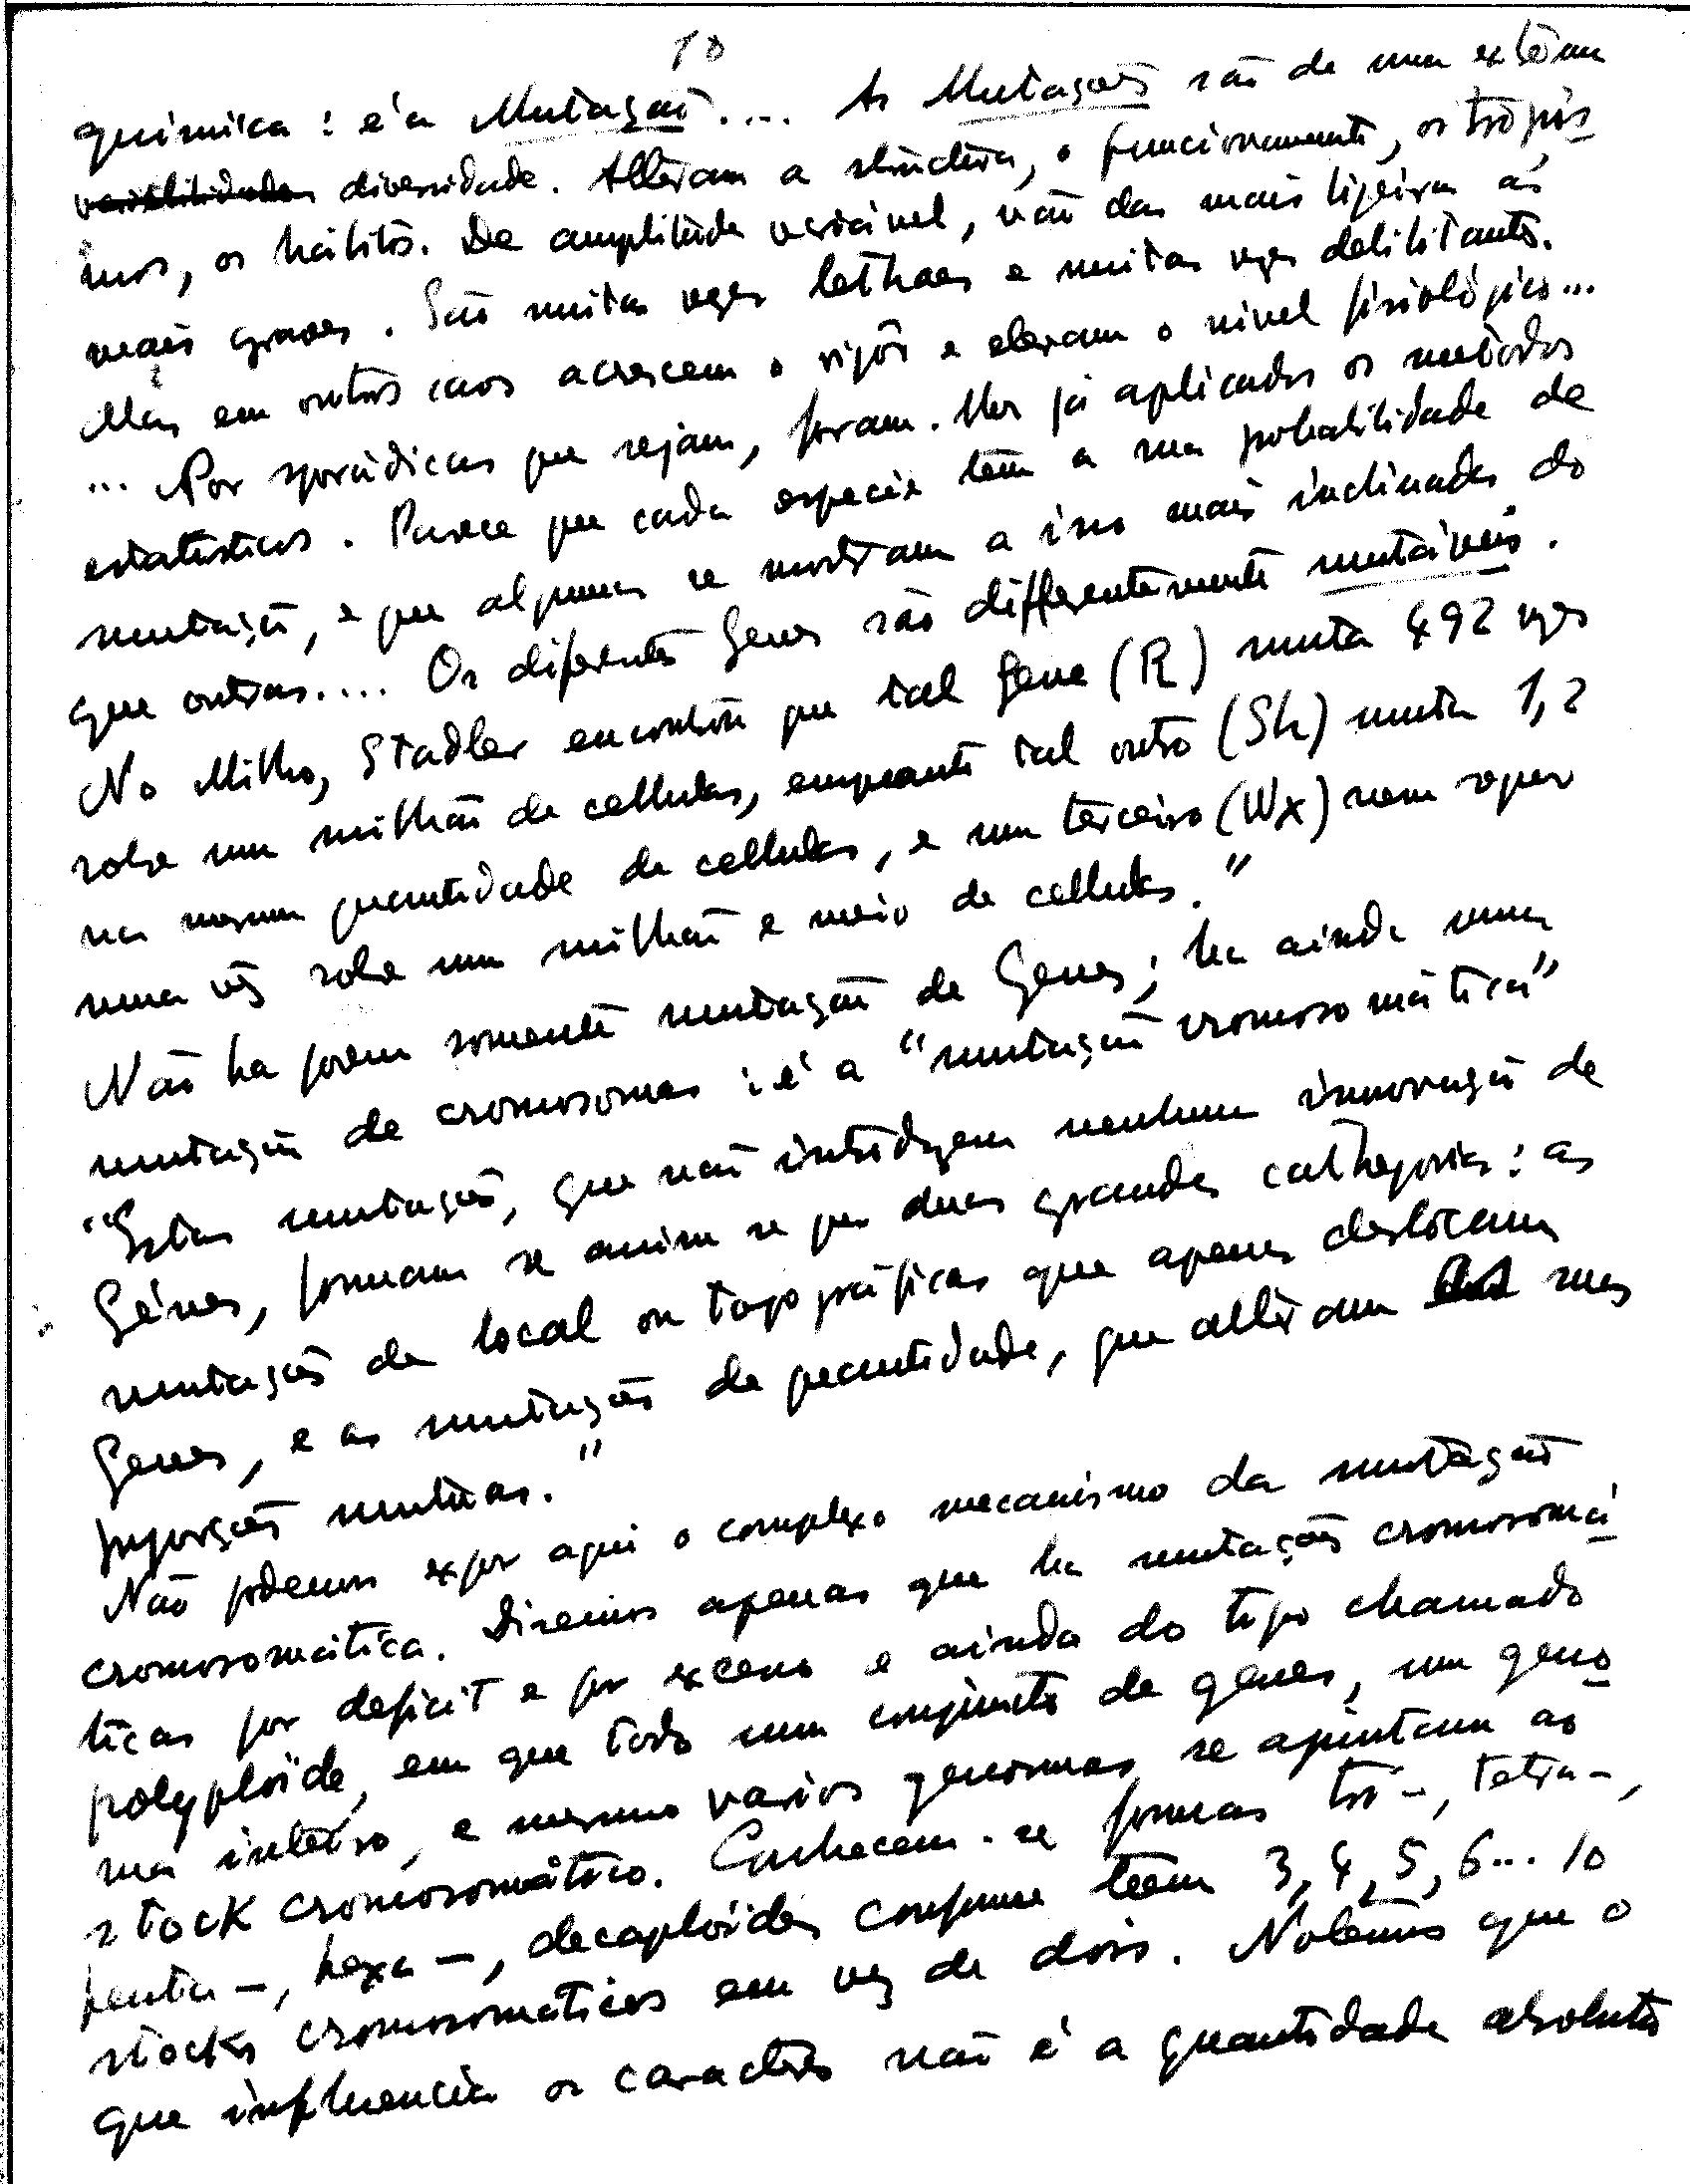 10
quimica : é a Mutação.... As Mutações são de uma extrema
variabilidade diversidade. Alteram a structura, o funccionamento, os tropis
mos, os habitos. De amplitude variável, vão das mais ligeiras ás
mais graves. São muitas vezes lethaes e muitas vezes debilitantes.
Mas em outros casos acrescem o vigôr e elevam o nivel fisiológico...
... Por sporádicas que sejam, foram-lhes já aplicados os metodos
estatisticos. Parece que cada especie tem a sua probabilidade de
mutação, e que algumas se mostram a isso mais inclinadas do
que outras.... Os diferentes Genes são differentemente mutáveis.
No Milho, Stadler encontrou que tal Gene (R) muta 492 vezes
sobre um milhão de cellulas, emquanto tal outro (Sh) muta 1,2
na mesma quantidade de cellulas, e um terceiro (Wx) nem siquer
uma vêz sobre um milhão e meio de cellulas."
Não ha porem somente mutação de Genes; ha ainda uma
mutação de cromosomas : é a "mutação cromosomática"
"Estas mutações, que não introduzem nenhuma innovação de
Génes, formam se assim se quer duas grandes cathegorias : as
mutações de local ou topográficas que apenas deslocam
Genes, e as mutações de quantidade, que alteram suas
proporções mutuas."
Não podemos expor aqui o complexo mecanismo da mutação
cromosomática. Diremos apenas que ha mutações cromosomá
ticas por deficit e por excesso e ainda do tipo chamado
polyplóide, em que todo um conjuncto de genes, um geno
ma inteiro, e mesmo varios genomas se ajuntam ao
stock cromosomático. Conhecem-se formas tri-, tetra-,
penta-, hexa-, decaplóides conforme teem 3, 4, 5, 6... 10
stocks cromosomaticos em vez de dois. Notemos que o
que influencia os caractéres não é a quantidade absoluta